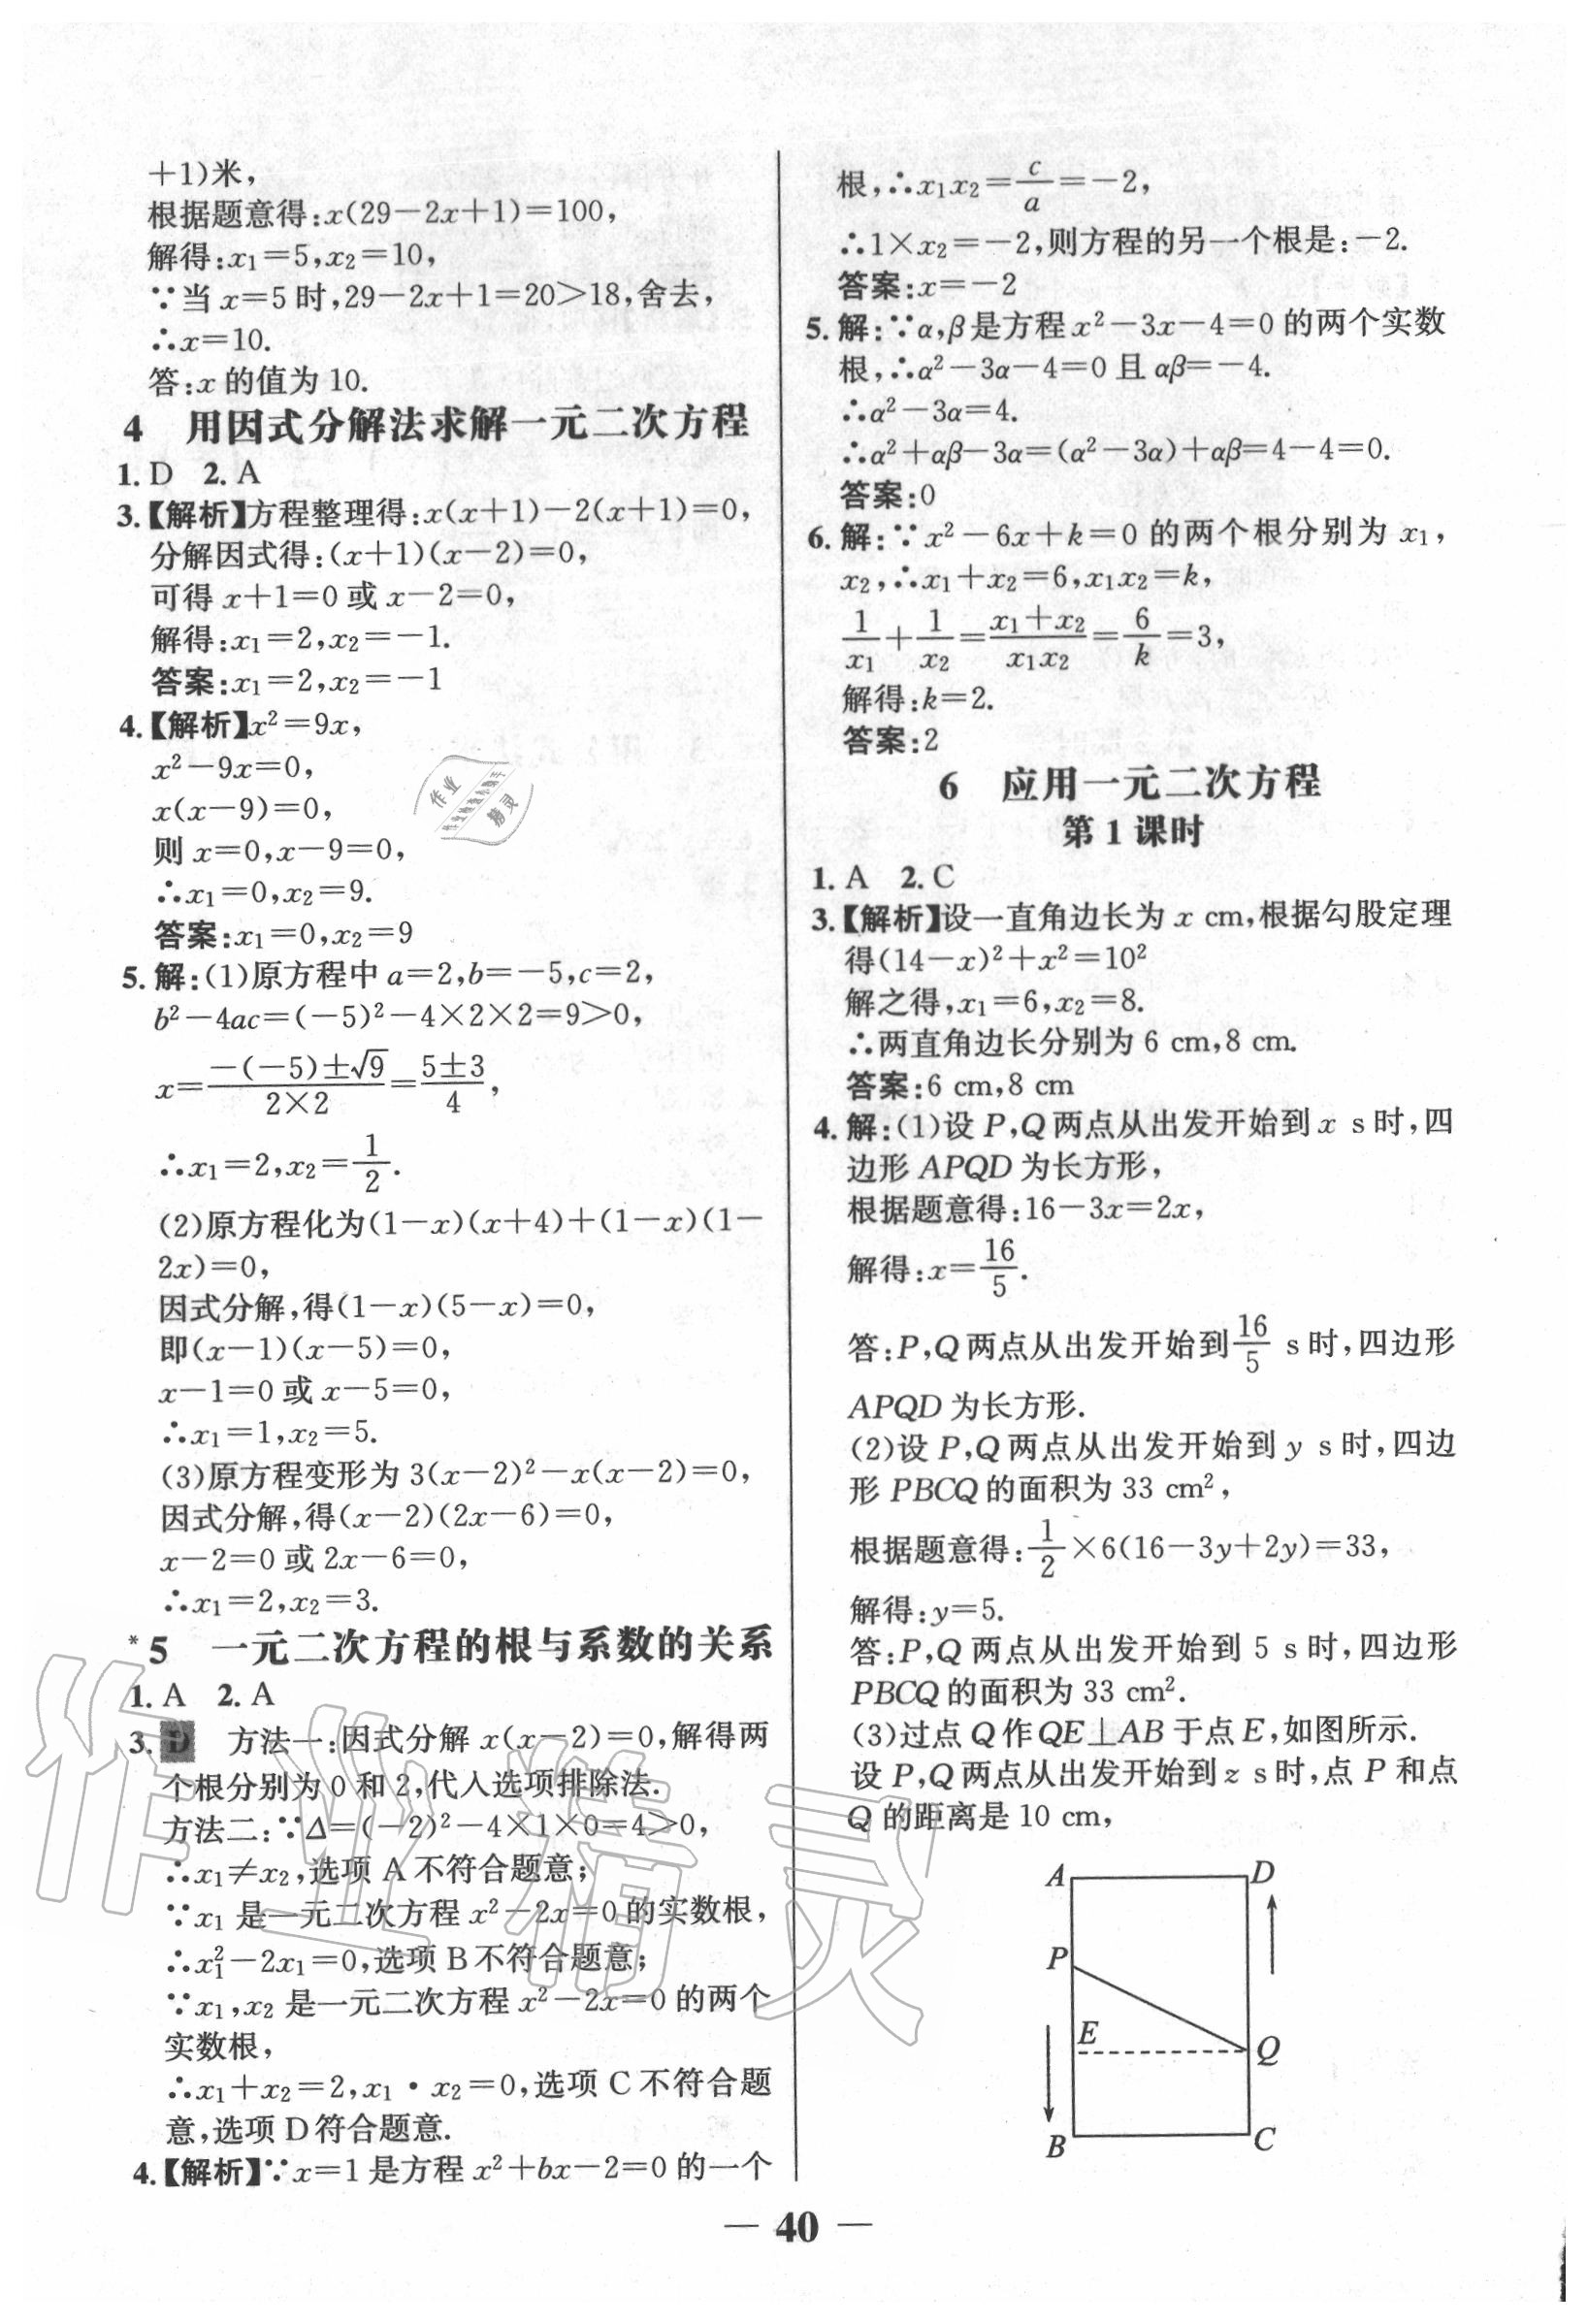 +1)米,
根据题意得:x(29-2x+1)=100,
解得:x₁=5,x₂=10,
∵当 x=5 时,29-2x+1=20>18,舍去,
∴x=10.
答:x 的值为 10.
4 用因式分解法求解一元二次方程
1. D 2. A
3.【解析】方程整理得:x(x+1)-2(x+1)=0,
分解因式得:(x+1)(x-2)=0,
可得 x+1=0 或 x-2=0,
解得:x₁=2,x₂=-1.
答案:x₁=2,x₂=-1
4.【解析】x²=9x,
x²-9x=0,
x(x-9)=0,
则 x=0,x-9=0,
∴x₁=0,x₂=9.
答案:x₁=0,x₂=9
5. 解:(1)原方程中 a=2,b=-5,c=2,
b²-4ac=(-5)²-4×2×2=9>0,
x=(-(-5)±√9)/(2×2)=(5±3)/4,
∴x₁=2,x₂=1/2.
(2)原方程化为(1-x)(x+4)+(1-x)(1-
2x)=0,
因式分解,得(1-x)(5-x)=0,
即(x-1)(x-5)=0,
x-1=0 或 x-5=0,
∴x₁=1,x₂=5.
(3)原方程变形为 3(x-2)²-x(x-2)=0,
因式分解,得(x-2)(2x-6)=0,
x-2=0 或 2x-6=0,
∴x₁=2,x₂=3.
*5 一元二次方程的根与系数的关系
1. A 2. A
3. D 方法一:因式分解 x(x-2)=0,解得两
个根分别为 0 和 2,代入选项排除法.
方法二:∵Δ=(-2)²-4×1×0=4>0,
∴x₁≠x₂,选项 A 不符合题意;
∵x₁ 是一元二次方程 x²-2x=0 的实数根,
∴x₁²-2x₁=0,选项 B 不符合题意;
∵x₁,x₂ 是一元二次方程 x²-2x=0 的两个
实数根,
∴x₁+x₂=2,x₁·x₂=0,选项 C 不符合题
意,选项 D 符合题意.
4.【解析】∵x=1 是方程 x²+bx-2=0 的一个
根,∴x₁x₂=c/a=-2,
∴1×x₂=-2,则方程的另一个根是:-2.
答案:x=-2
5. 解:∵α,β是方程 x²-3x-4=0 的两个实数
根,∴α²-3α-4=0 且 αβ=-4.
∴α²-3α=4.
∴α²+αβ-3α=(α²-3α)+αβ=4-4=0.
答案:0
6. 解:∵x²-6x+k=0 的两个根分别为 x₁,
x₂,∴x₁+x₂=6,x₁x₂=k,
1/x₁+1/x₂=(x₁+x₂)/(x₁x₂)=6/k=3,
解得:k=2.
答案:2
6 应用一元二次方程
第 1 课时
1. A 2. C
3.【解析】设一直角边长为 x cm,根据勾股定理
得(14-x)²+x²=10²
解之得,x₁=6,x₂=8.
∴两直角边长分别为 6 cm,8 cm.
答案:6 cm,8 cm
4. 解:(1)设 P,Q 两点从出发开始到 x s 时,四
边形 APQD 为长方形,
根据题意得:16-3x=2x,
解得:x=16/5.
答:P,Q 两点从出发开始到16/5 s 时,四边形
APQD 为长方形.
(2)设 P,Q 两点从出发开始到 y s 时,四边
形 PBCQ 的面积为 33 cm²,
根据题意得:1/2×6(16-3y+2y)=33,
解得:y=5.
答:P,Q 两点从出发开始到 5 s 时,四边形
PBCQ 的面积为 33 cm².
(3)过点 Q 作 QE⊥AB 于点 E,如图所示.
设 P,Q 两点从出发开始到 z s 时,点 P 和点
Q 的距离是 10 cm,
A D
P
E Q
B C
— 40 —
作业
精灵
作业精灵